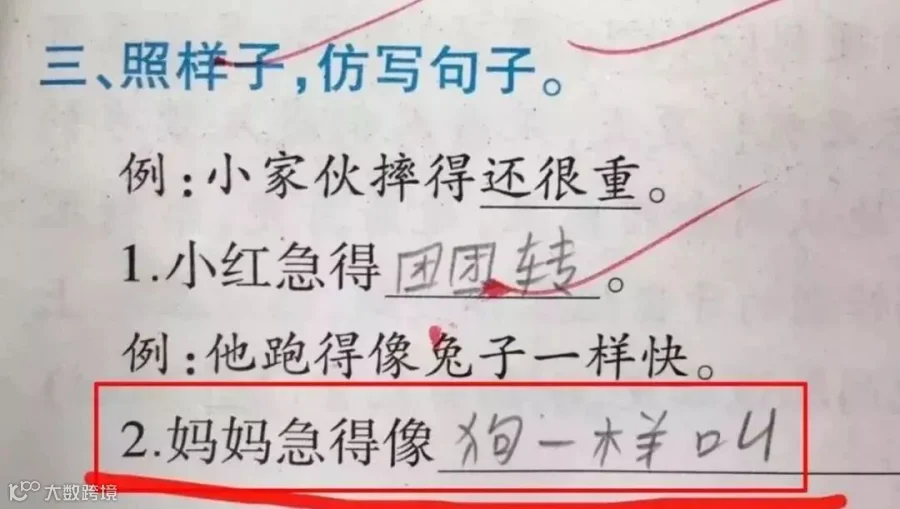 三、照样子,仿写句子。
例:小家伙摔得还很重。
1.小红急得团团转。
例:他跑得像兔子一样快。
2.妈妈急得像狗一样叫
大数跨境